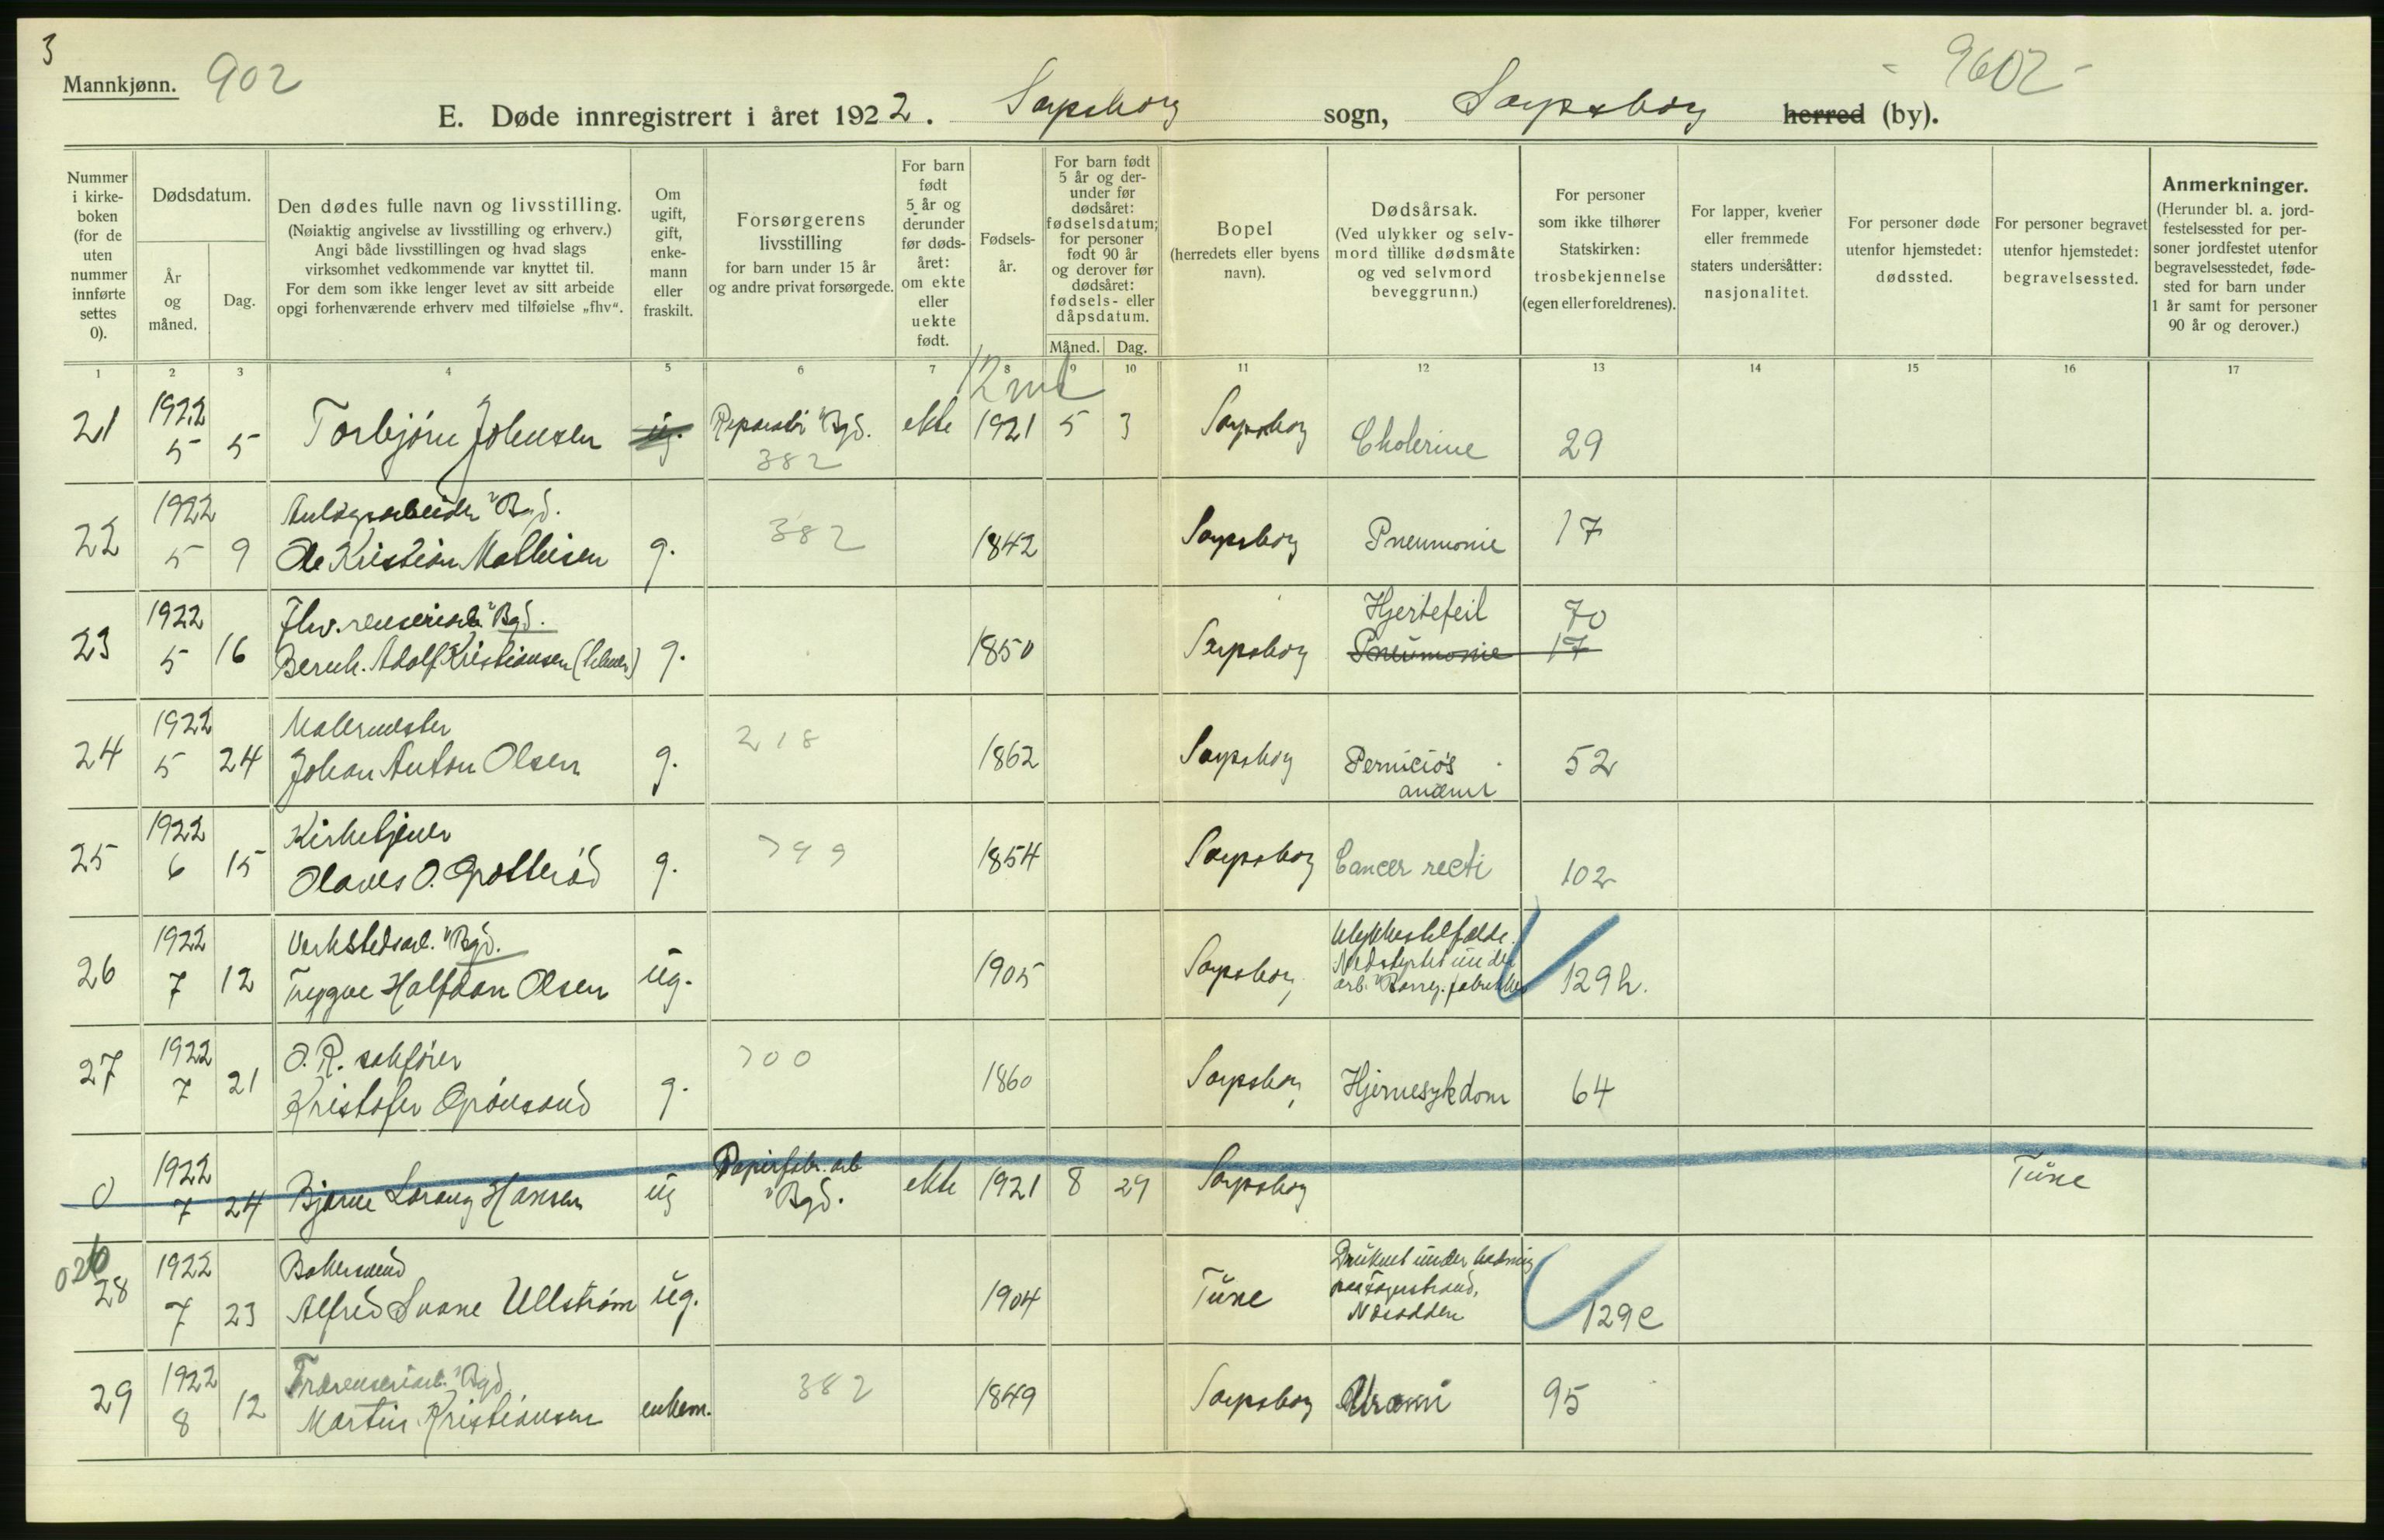 3
Mannkjønn. 902
- 9602 -
E. Døde innregistrert i året 1922. Sarpsborg sogn, Sarpsborg herred (by).
Nummer i kirke- boken (for de uten nummer innførte settes 0).
Dødsdatum.
År og måned.
Dag.
Den dødes fulle navn og livsstilling.
(Nøiaktig angivelse av livsstilling og erhverv.)
Angi både livsstillingen og hvad slags
virksomhet vedkommende var knyttet til.
For dem som ikke lenger levet av sitt arbeide
opgi forhenværende erhverv med tilføielse „fhv“.
Om ugift, gift, enke- mann eller fraskilt.
Forsørgerens livsstilling
for barn under 15 år
og andre privat forsørgede.
For barn født 5 år og derunder før døds- året: om ekte eller uekte født.
Fødsels- år.
For barn født 5 år og der- under før dødsåret: fødselsdatum; for personer født 90 år og derover før dødsåret: fødsels- eller dåpsdatum.
Måned. Dag.
Bopel
(herredets eller byens navn).
Dødsårsak.
(Ved ulykker og selv- mord tillike dødsmåte og ved selvmord beveggrunn.)
For personer som ikke tilhører Statskirken: trosbekjennelse (egen eller foreldrenes).
For lapper, kvener eller fremmede staters undersåtter: nasjonalitet.
For personer døde utenfor hjemstedet: dødssted.
For personer begravet utenfor hjemstedet: begravelsessted.
Anmerkninger.
(Herunder bl. a. jord- festelsessted for per- soner jordfestet utenfor begravelsesstedet, føde- sted for barn under 1 år samt for personer 90 år og derover.)
1 2 3 4 5 6 7 8 9 10 11 12 13 14 15 16 17
12 md
21 1922 5 5 Torbjörn Johnsen ug. Reparatör "Bgd. 382 ekte 1921 5 3 Sarpsborg Cholerine 29
22 1922 5 9 Anlægsarbeider "Bgd.
Ole Kristian Mathisen g. 382 1842 Sarpsborg Pneumonie 17
23 1922 5 16 Fhv. renseriarb. "Bgd.
Bernh. Adolf Kristiansen g. 1850 Sarpsborg Hjertefeil 70
Pneumonie 17
24 1922 5 24 Malermester
Johan Anton Olsen g. 218 1862 Sarpsborg Perniciøs anæmi 52
25 1922 6 15 Kirketjener
Olaves O. Grötteröd g. 799 1854 Sarpsborg Cancer recti 102
26 1922 7 12 Verkstedsarb. "Bgd.
Trygve Halfdan Olsen ug. 1905 Sarpsborg Ulykkestilfælde.
Nedstyrtet under
arb. "Borreg. fabrikker 129 h.
27 1922 7 21 O. R. sakförer
Kristofer Grönsand g. 700 1860 Sarpsborg Hjernesykdom 64
0 1922 7 24 Bjarne Lorang Hansen ug Papirfabr. arb "Bgd. ekte 1921 8 29 Sarpsborg Tune
026
28 1922 7 23 Bakersvend
Alfred Svane Ullström ug. 1904 Tune Druknet under badning
paa Fagerstrand,
Næsodden 129 e
29 1922 8 12 Trærenseriarb. "Bgd
Martin Kristiansen enkem. 382 1849 Sarpsborg Uræmi 95